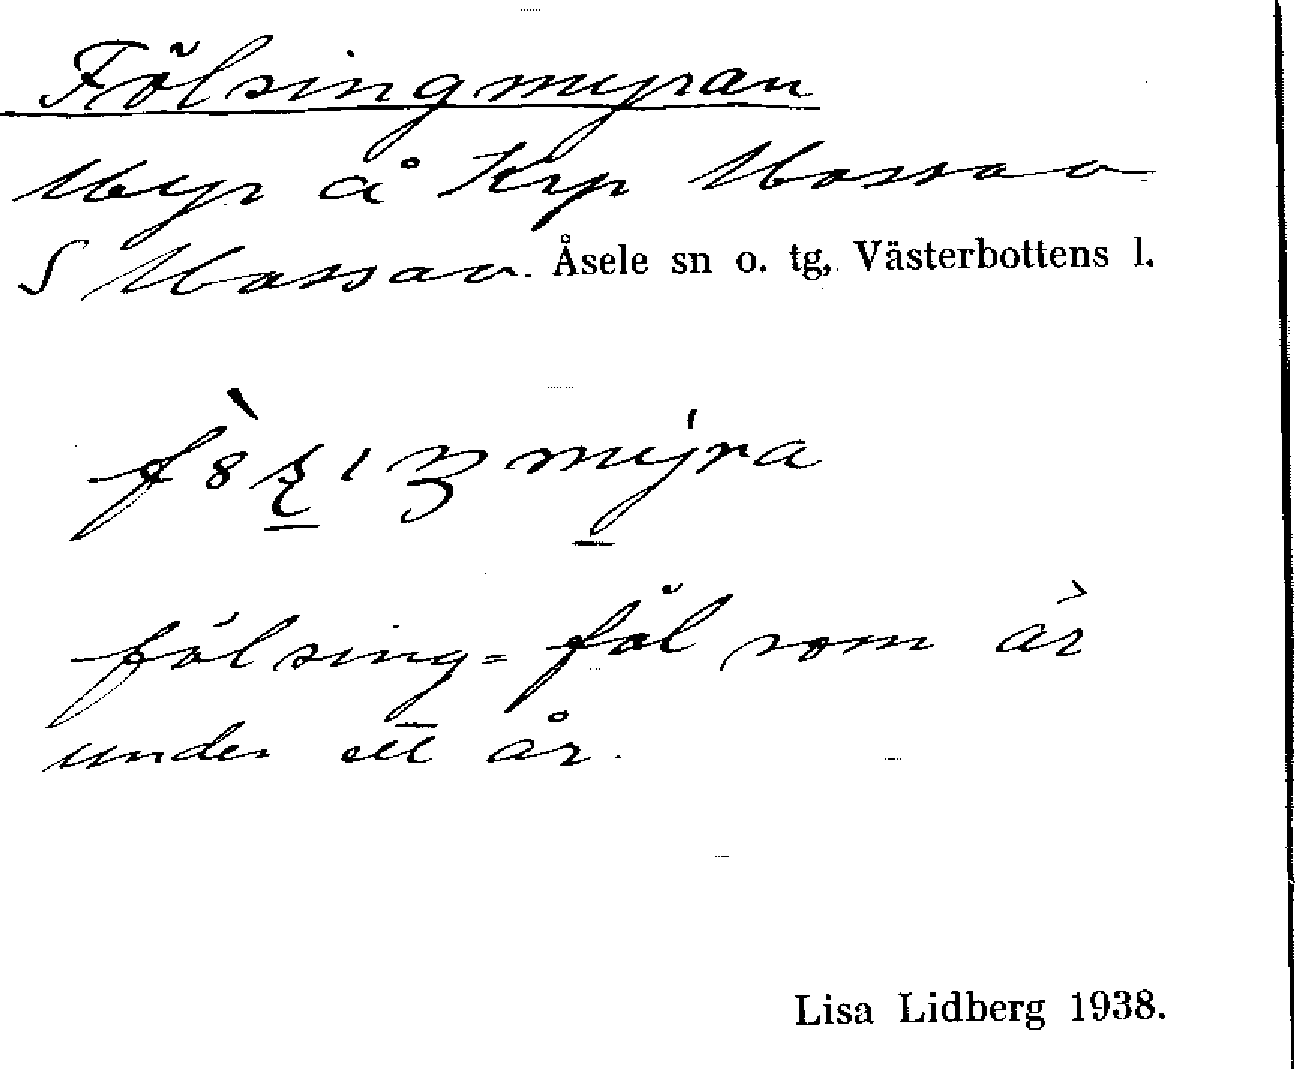 Fölsingmyran
Myr å Krp Mossav
S Mossav. Åsele sn o. tg, Västerbottens l.
fölsing = föl som är
under ett år.
Lisa Lidberg 1938.